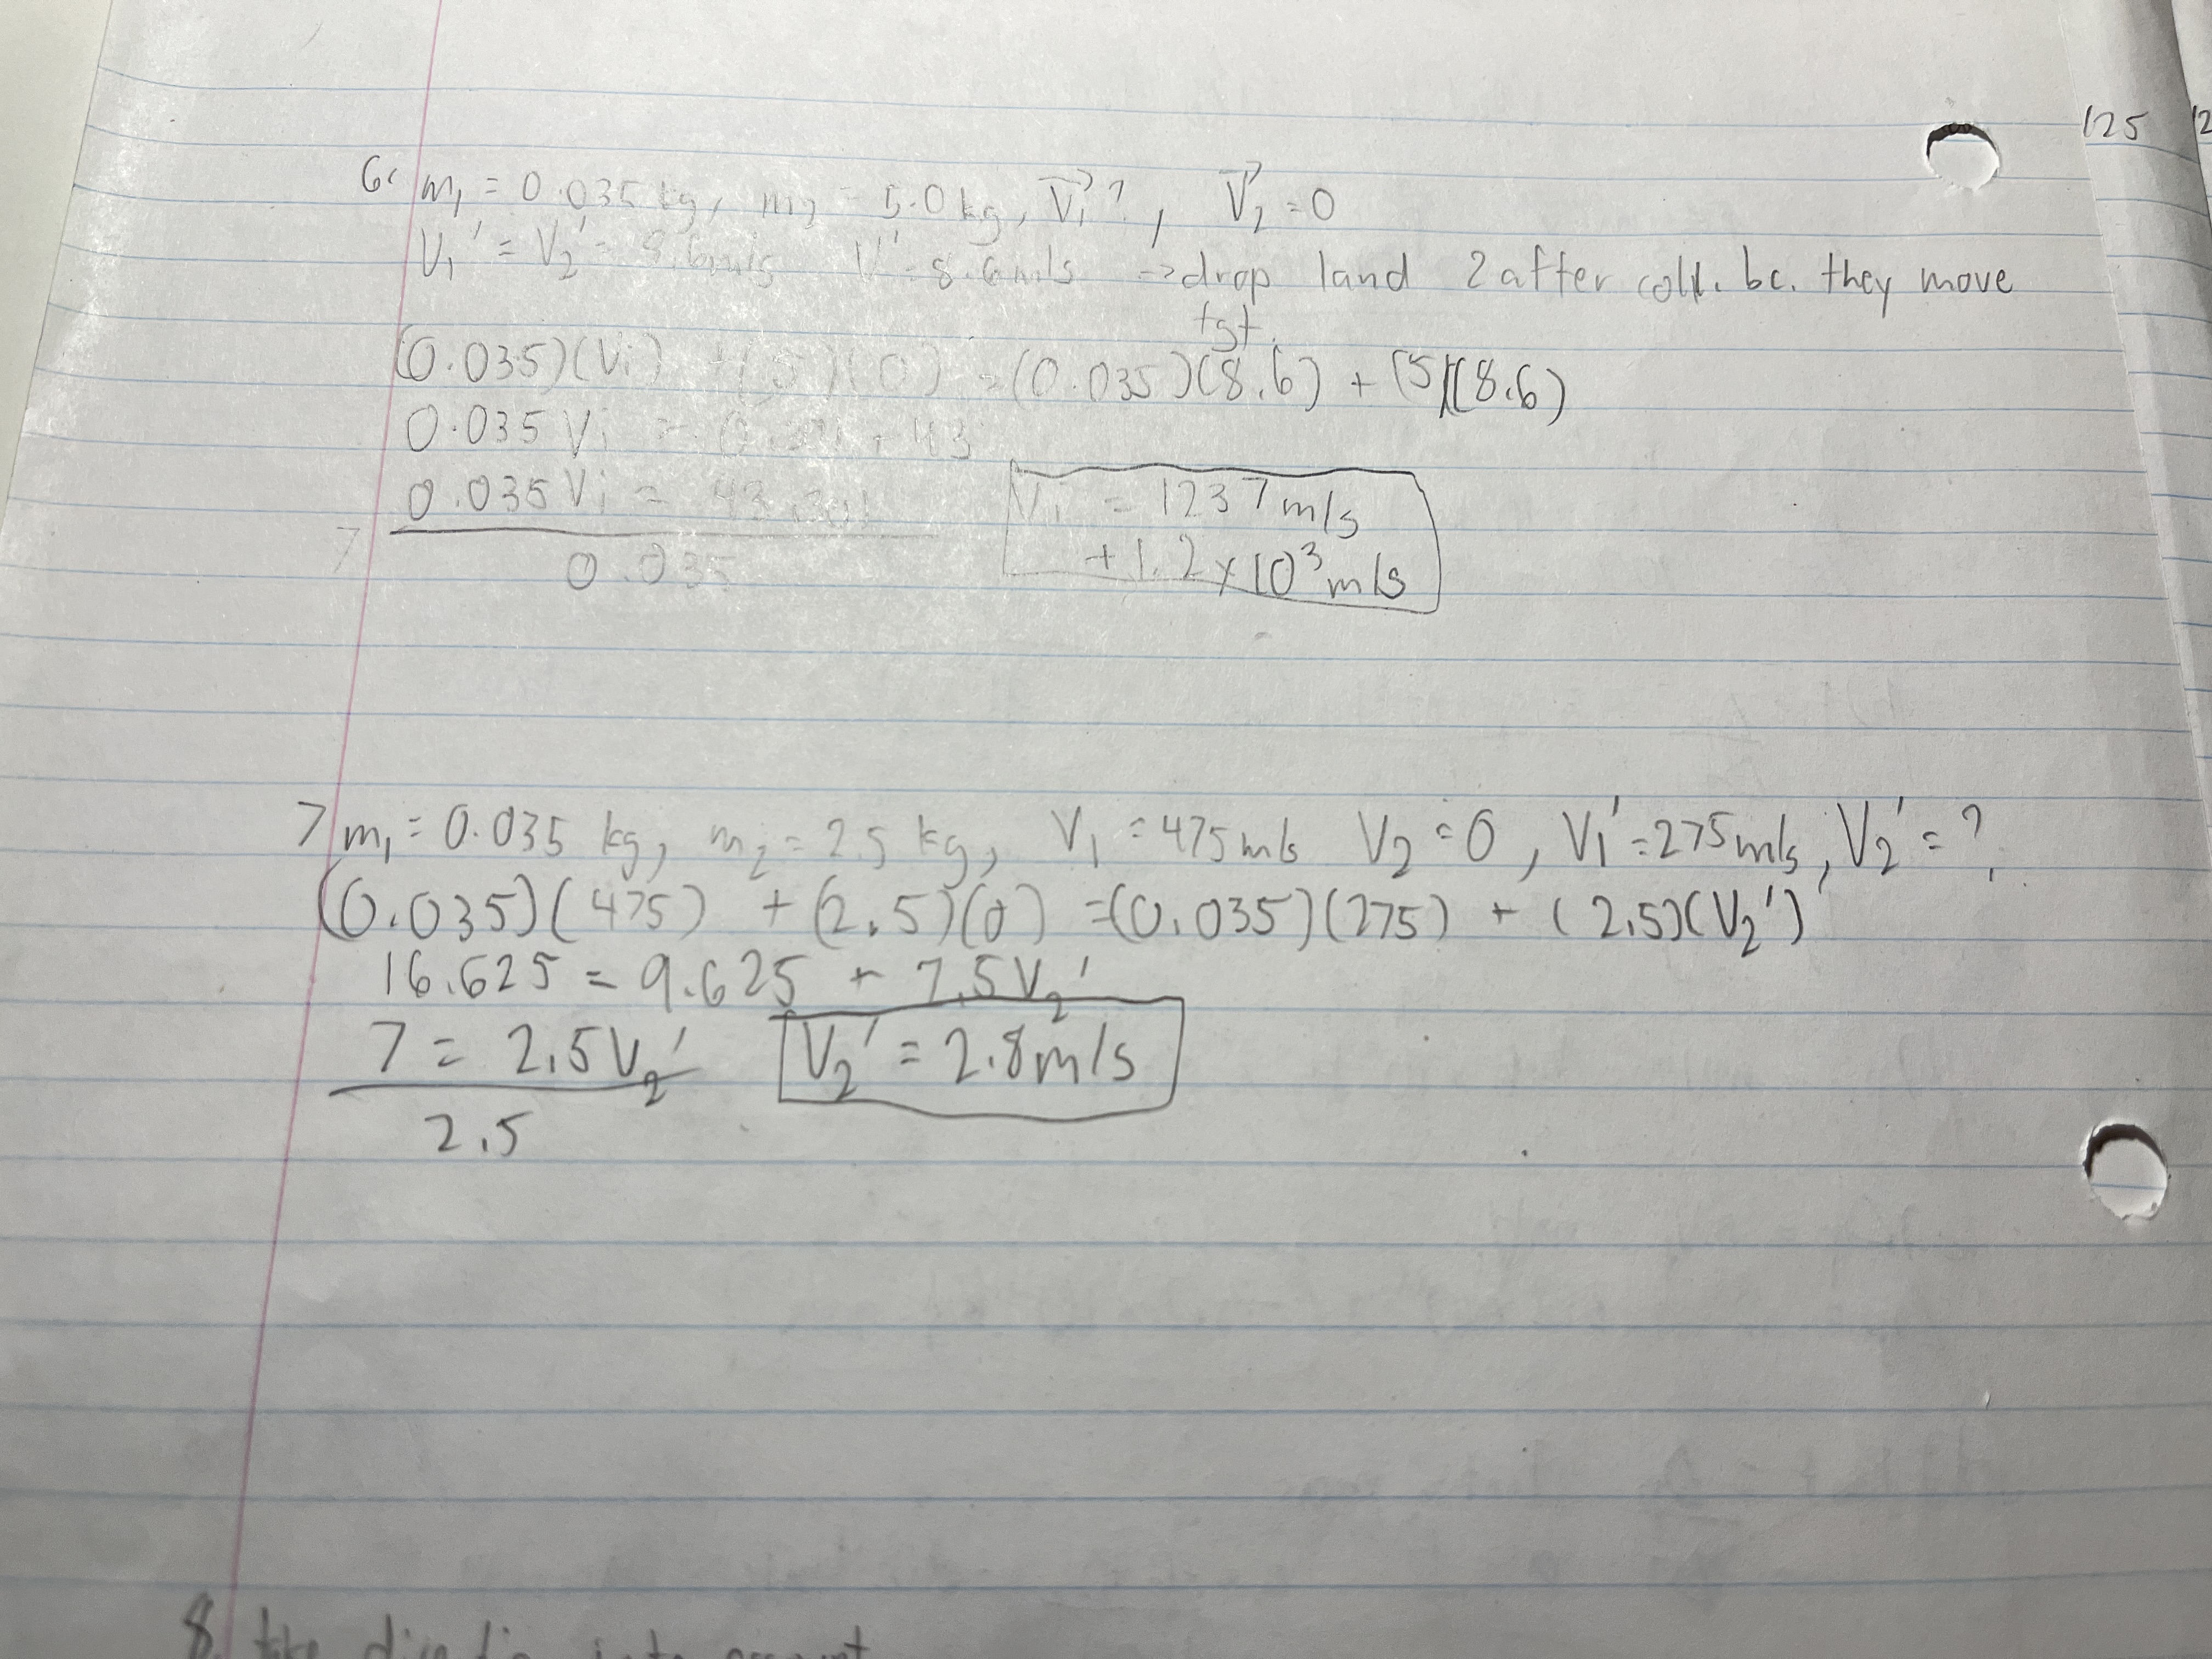 125
6. m₁ = 0.035 kg, m₂ = 5.0 kg, V₁ ?, V₂ = 0
V₁' = V₂' = 8.6 m/s V' = 8.6 m/s → drop 1 and 2 after coll. bc. they move
tgt.
(0.035)(V₁) + (5)(0) = (0.035)(8.6) + (5)(8.6)
0.035 V₁ = 0.301 + 43
0.035 V₁ = 43.301
0.035
V₁ = 1237 m/s
+1.2 x 10³ m/s
7
7 m₁ = 0.035 kg, m₂ = 2.5 kg, V₁ = 475 m/s V₂ = 0, V₁' = 275 m/s, V₂' = ?
(0.035)(475) + (2.5)(0) = (0.035)(275) + (2.5)(V₂')
16.625 = 9.625 + 7.5V₂'
7 = 2.5V₂'
2.5
V₂' = 2.8 m/s
8. take direction into account